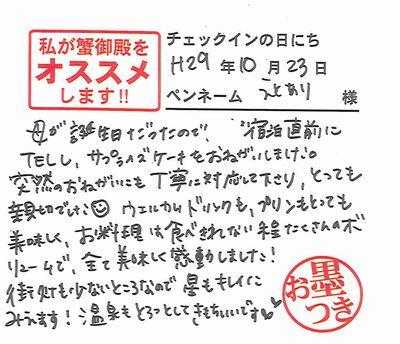 私が蟹御殿を
オススメ
します!!
チェックインの日にち
H29年10月23日
ペンネーム ことあり 様
母が誕生日だったので、宿泊直前に
TELし、サプライズケーキをおねがいしました。
突然のおねがいにも丁寧に対応して下さり、とっても
親切でした☺ ウェルカムドリンクも、プリンもとっても
美味しく、お料理は食べきれない程たくさんのボ
リュームで、全て美味しく感動しました!
街灯も少ないところなので星もキレイに
みえます!温泉もとろっとしてきもちいいです♥
お墨つき